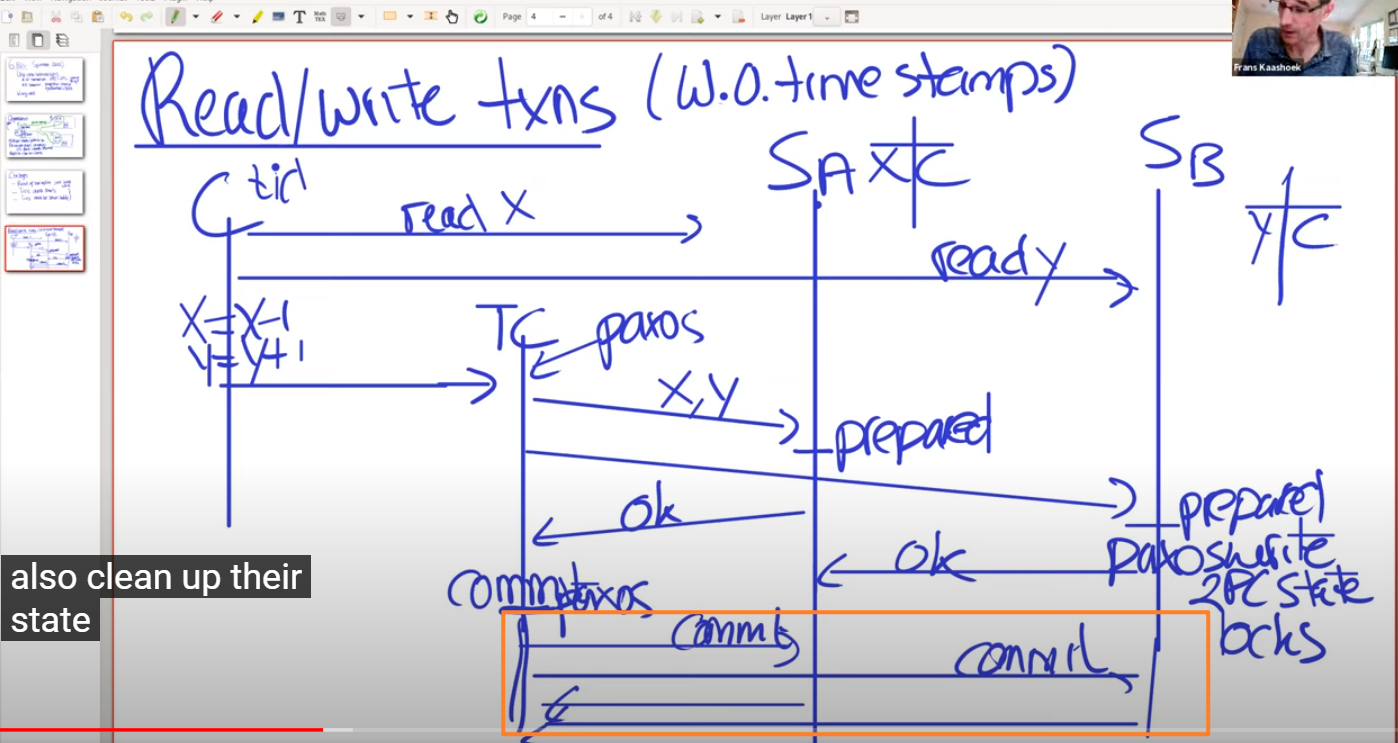 Page 4 of 4 Layer Layer 1
Frans Kaashoek
Read/write txns (W.O. timestamps)
C tid
SA X C
SB
Y C
read X
read y
X=X-1
y=y+1
TC
paxos
X,y
prepared
ok
prepared
ok
paxos write
2PC state
locks
commit paxos
commit
commit
also clean up their
state